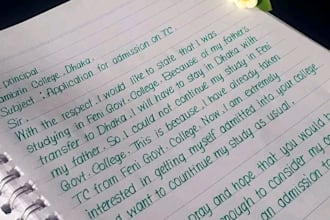 principal
College, Dhaka.
Subject: Application for admission on TC.
Sir,
With the respect, I would like to state that I was
studying in Feni Govt. College. Because of my father's
transfer to Dhaka, I will have to stay in Dhaka with
my father. So, I could not continue my study in Feni
Govt. College. This is because, I have already taken
TC from Feni Govt. College. Now, I am extremely
interested in getting myself admitted into your college
I want to countinue my study as usual.
pray and hope that you would b
enough to consider my c
an admission